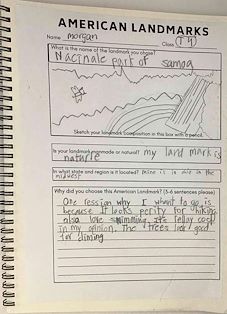 AMERICAN LANDMARKS
Name morgan Class T4
What is the name of the landmark you chose?
Nacinale park of samoa
Sketch your landmark composition in this box with a pencil.
Is your landmark manmade or natural? my land mark is
naturle
In what state and region is it located? mine is in the
midwest
Why did you choose this American Landmark? (3-6 sentences please)
One ression why I whant to go is
because it looks perity for hiking
also love swimming. it's rellay cool
in my opinion. The trees look good
for climing